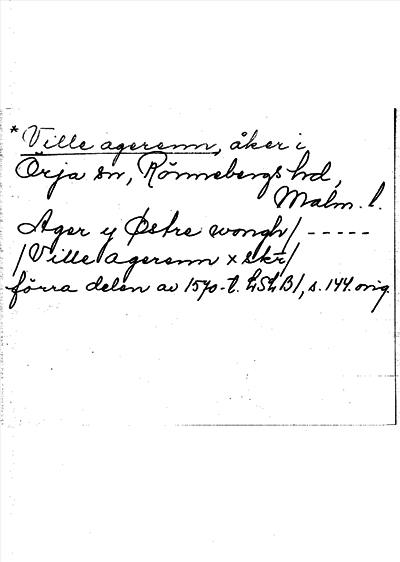 *Ville agerenn, åker i
Örja sn, Rönnebergs hd,
Malm. l.
Ager y Østre wongh/ -----
/Ville agerenn x skr/
förra delen av 1570-t. LSLB/, s. 144. orig.